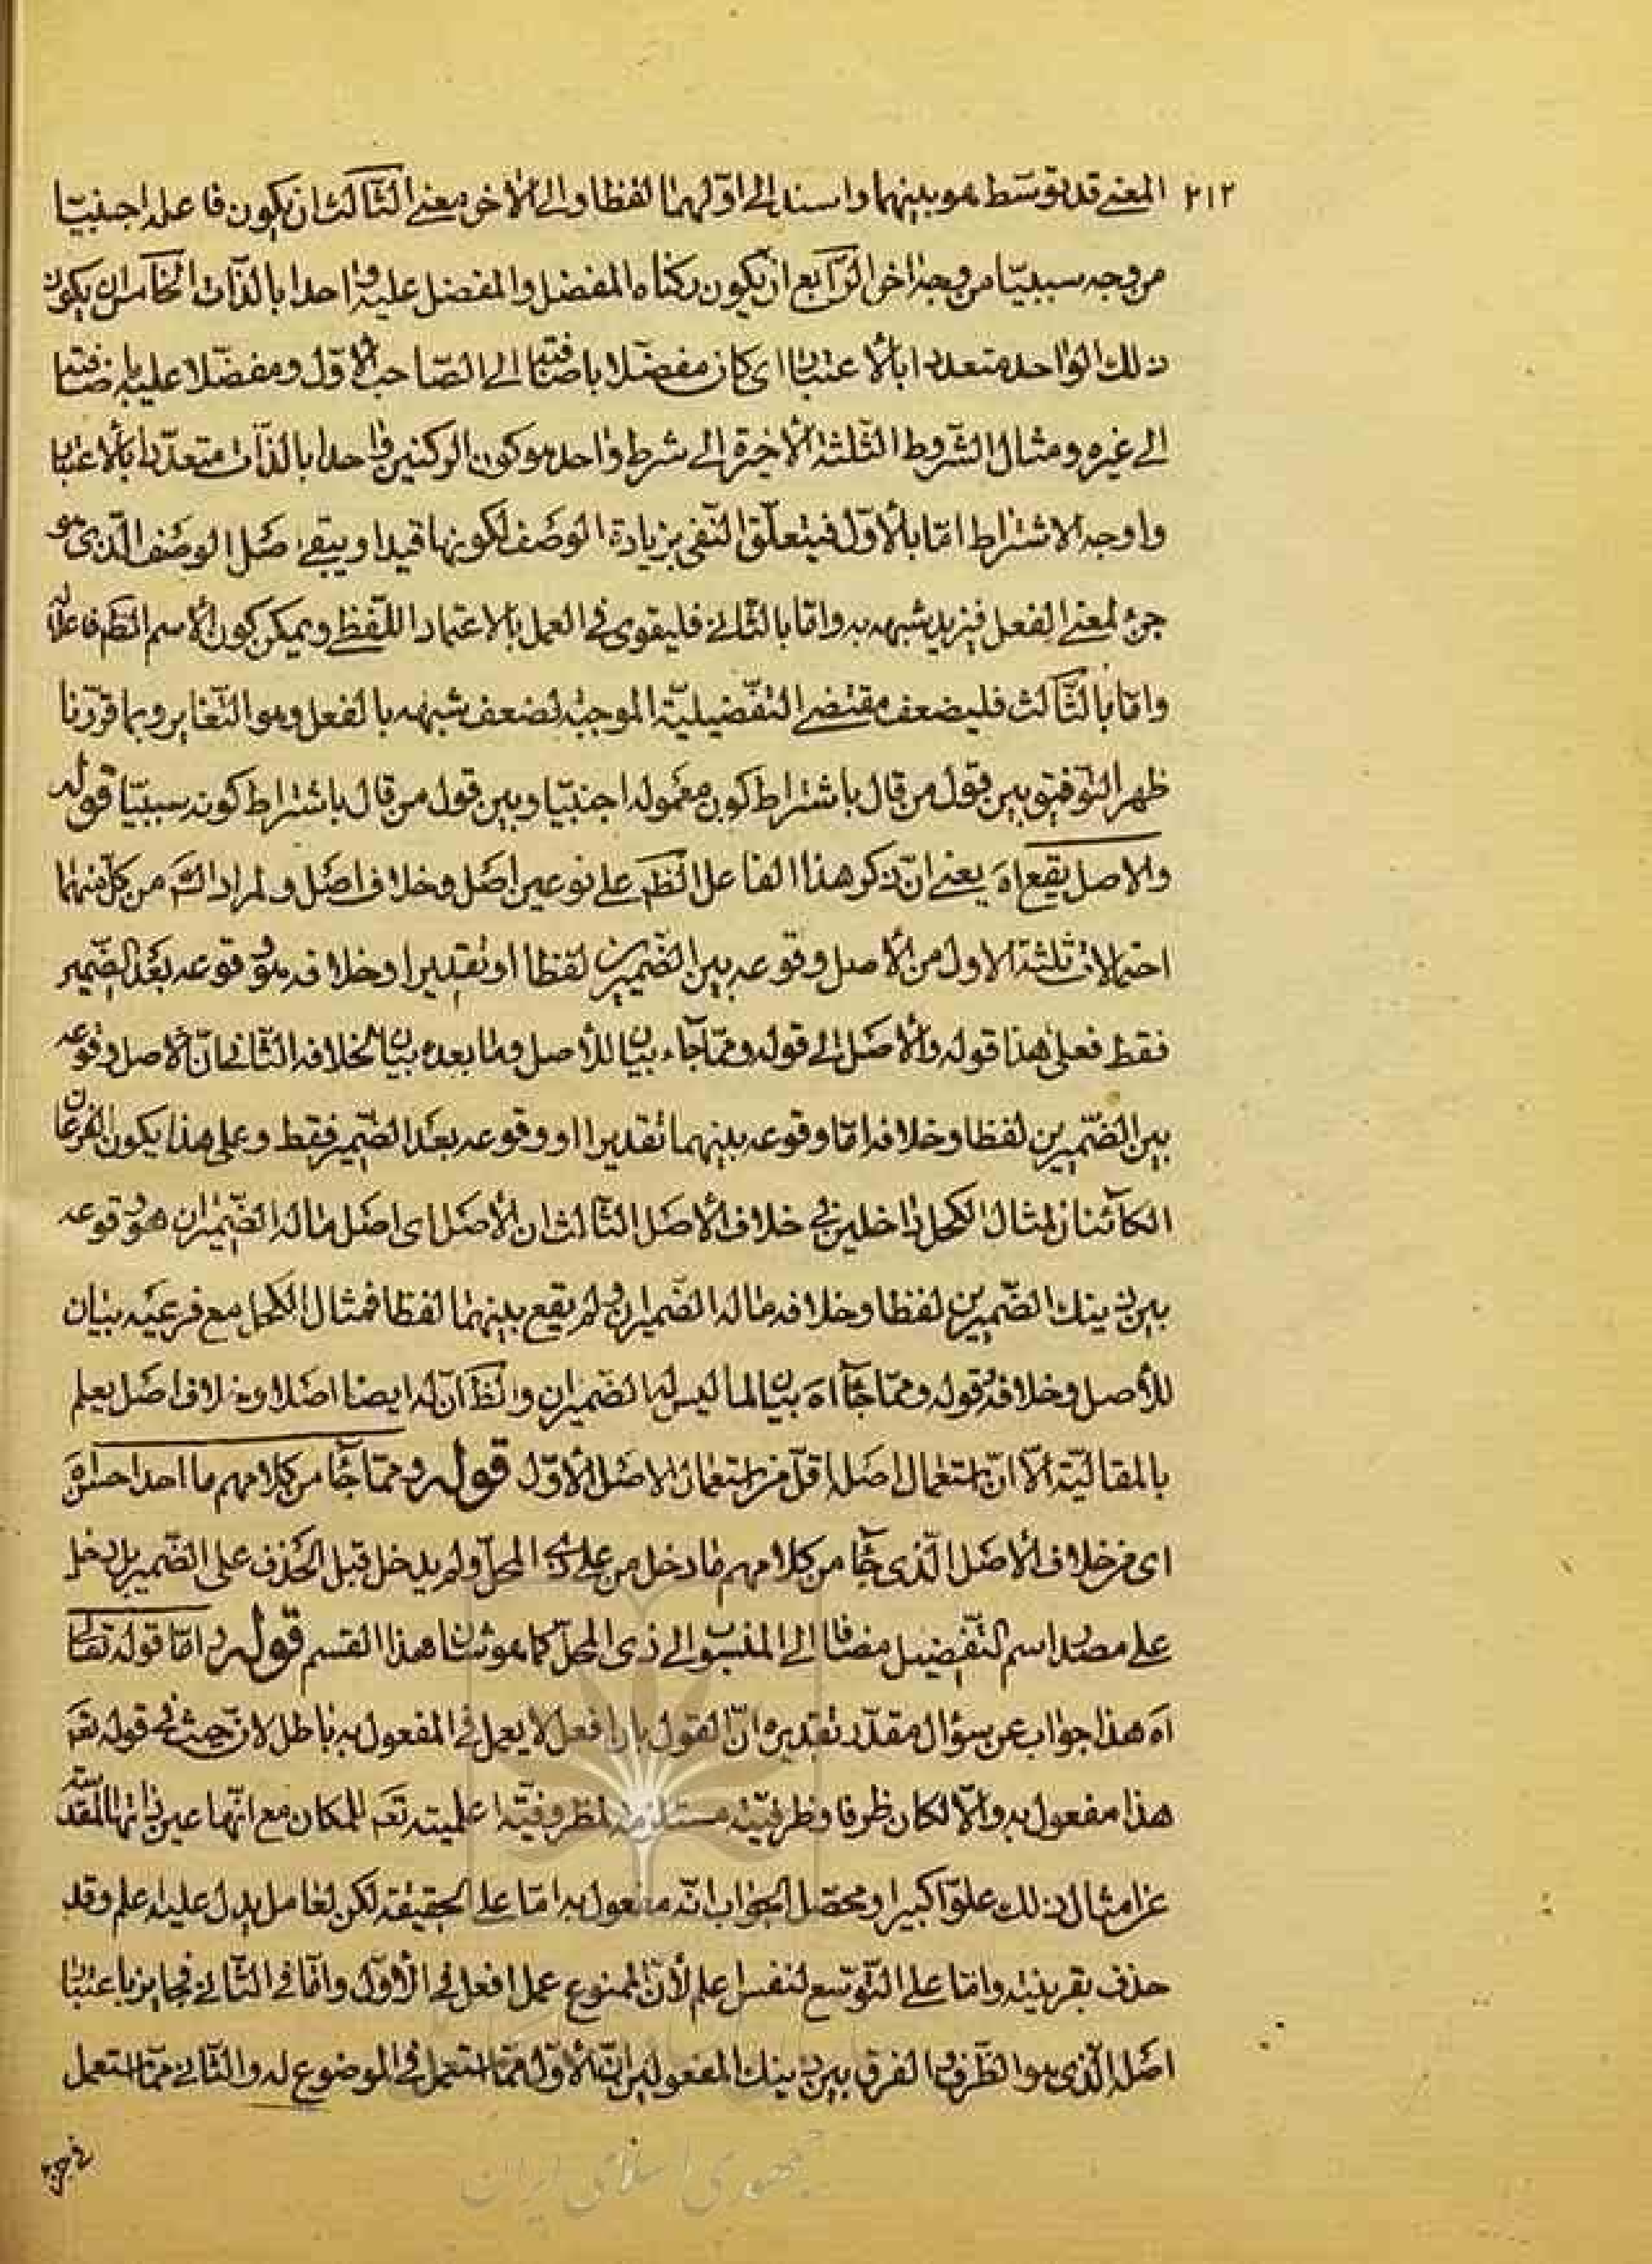 ٢١٢ المعنى قد توسط هو بينهما واسند الى اولهما لفظا والى الاخر معنى الثالث ان يكون فاعله اجنبيّا
من وجه سببيّا من وجه اخر الرّابع ان يكون ركناه المفضل والمفضل عليه واحدا بالذّات الخامس ان يكون
ذلك الواحد متعددا بالاعتبار اى كان مفضّلا باضافته الى الصّاحب الاوّل ومفضّلا عليه باضافته
الى غيره ومثال الشّروط الثّلثة الأخيرة الى شرط واحد هو كون الركنين واحدا بالذّات متعدّدا بالاعتبار
واوجه الاشتراط امّا بالأوّل فيتعلّق النّفى بزيادة الوصف لكونها قيدا ويبقى اصل الوصف الّذى هو
جزء لمعنى الفعل فيزيد شبهه به وامّا بالثّانى فليقوى فى العمل بالاعتماد اللّفظى ويمكن كون الاسم الظّم فاعلا له
وامّا بالثّالث فليضعف مقتضى التّفضيليّة الموجبة لضعف شبهه بالفعل وهو التّغاير وبما قرّرنا
ظهر التّوفيق بين قول من قال باشتراط كون معموله اجنبيّا وبين قول من قال باشتراط كونه سببيّا قوله
والاصل يقع اه يعنى انّ ذكر هذا الفاعل الظّم على نوعين اصل وخلاف اصل ولمراد الشّم من كلّ منهما
احتمالات ثلثة الاول من الأصل وقوعه بين الضّميرين لفظا او تقديرا وخلافه هو وقوعه بعد الضّمير
فقط فعلى هذا قوله والأصل الى قوله وممّا جآء بيان للأصل وما بعده بيان لخلافه الثّانى انّ الاصل وقوعه
بين الضّميرين لفظا وخلافه امّا وقوعه بينهما تقديرا او وقوعه بعد الضّمير فقط وعلى هذا يكون الفرعان
الكائنان لمثال الكحل داخلين فى خلاف الأصل الثّالث ان الأصل اى اصل ما له الضّميران هو وقوعه
بين ذينك الضّميرين لفظا وخلافه ما له الضّميران ولم يقع بينهما لفظا فمثال الكحل مع فرعيه بيان
للأصل وخلافه وقوله وممّا جآء اه بيان لما ليس له الضّميران والظّ انّ له ايضا اصلا وخلاف اصل يعلم
بالمقاليّة الّا انّ استعمال اصله اقلّ من استعمال الاصل الأوّل قوله وممّا جآء من كلامهم ما احد احسن
اى من خلاف الأصل الّذى جآء من كلامهم ما دخل من على ذى المحلّ ولم يدخل قبل الحذف على الضّمير بل دخل
على مصدر اسم التّفضيل مضافا الى المنسوب الى ذى المحلّ كما هو شان هذا القسم قوله وامّا قوله تعالى
اه هذا جواب عن سؤال مقدّر تقديره انّ القول بان افعل لا يعمل فى المفعول به باطل لانّ حيث فى قوله تعم
هذا مفعول به والّا لكان ظرفا وظرفيّته مستلزمة لمظروفيّة اعلميته تعم للمكان مع انّها عين ذاتها المقدّسة
عن امثال ذلك علوّا كبيرا ومحصّل الجواب انّه مفعول به امّا على الحقيقة لكن لعامل يدل عليه اعلم وقد
حذف بقرينته وامّا على التّوسّع لنفس اعلم لأنّ الممنوع عمل افعل فى الأوّل وامّا فى الثّانى فجايز باعتبار
اصله الّذى هو الظّرف والفرق بين ذينك المفعولين انّ الأوّل ممّا استعمل فى الموضوع له والثّانى ممّا استعمل
فى جزء
جمهوری اسلامی ایران